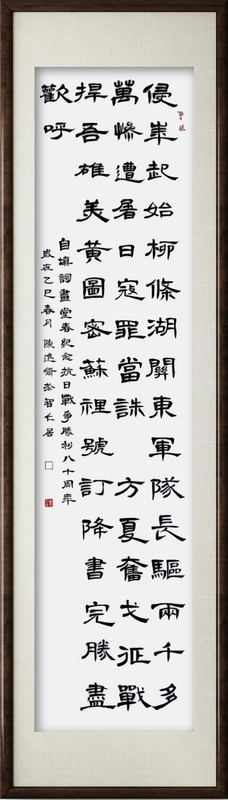 侵華起始柳條湖關東軍隊長驅兩千多
萬慘遭屠日寇罪當誅 方夏奮戈征戰
捍吾雄美黃圖密蘇裡號訂降書完勝盡
歡呼
自詞畫堂春紀念抗日戰爭勝利八十周年
歲在乙巳春月陳逸於智仁居